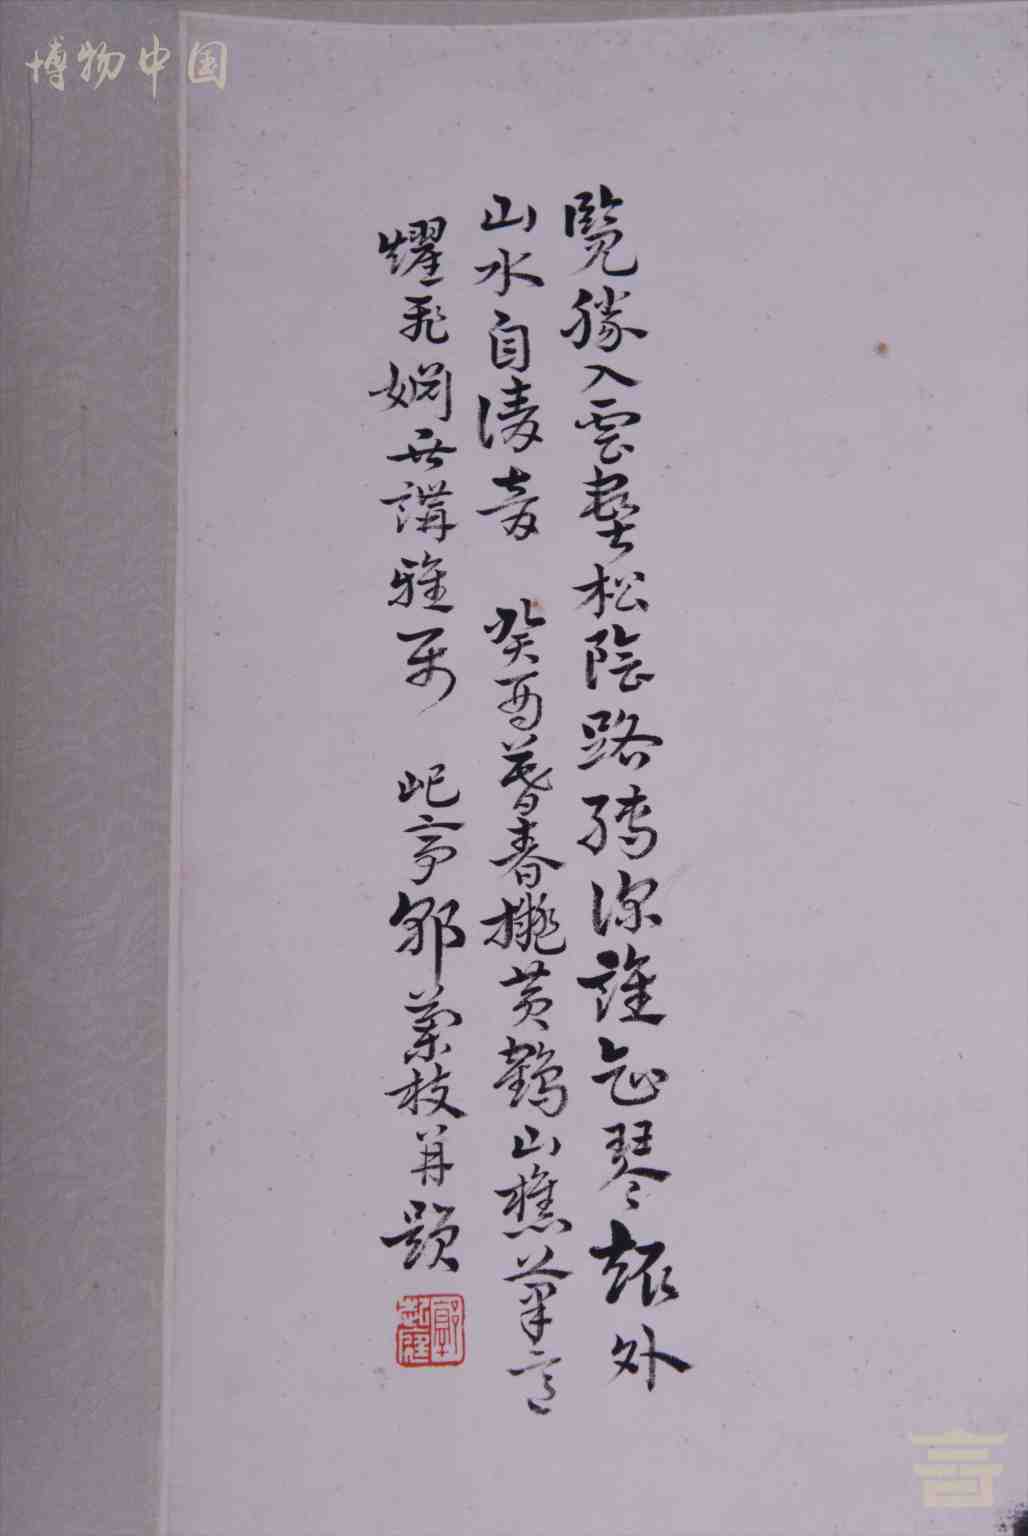 博物中国
覽勝入雲壑松陰路轉深誰知琴趣外
山水自清音 癸酉暮春撫黃鶴山樵筆意
耀飛嫻世講雅屬 屺亭鄒蘭枝并題